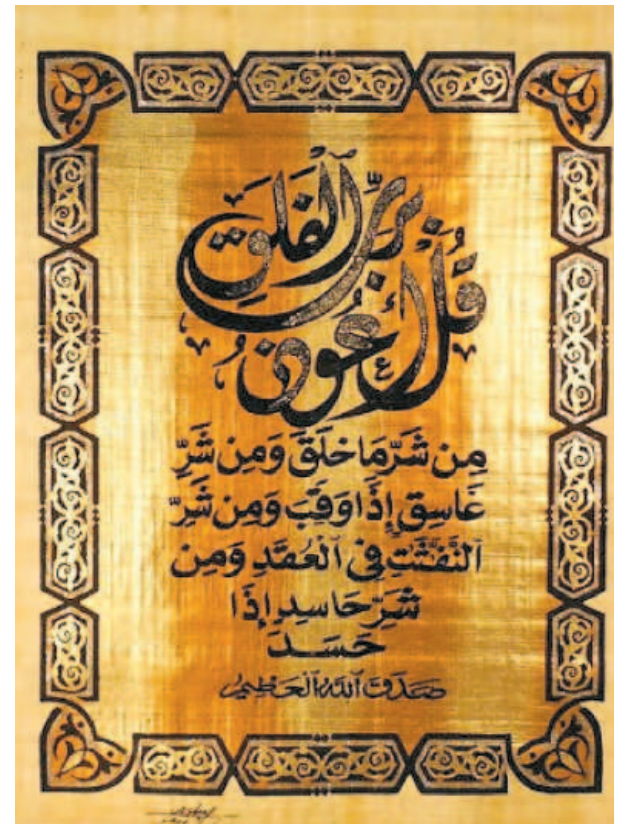 قُلْ أَعُوذُ
بِرَبِّ الْفَلَقِ
مِن شَرِّ مَا خَلَقَ وَمِن شَرِّ
غَاسِقٍ إِذَا وَقَبَ وَمِن شَرِّ
ٱلنَّفَّٰثَٰتِ فِي ٱلْعُقَدِ وَمِن
شَرِّ حَاسِدٍ إِذَا
حَسَدَ
صَدَقَ ٱللَّهُ ٱلْعَظِيمُ